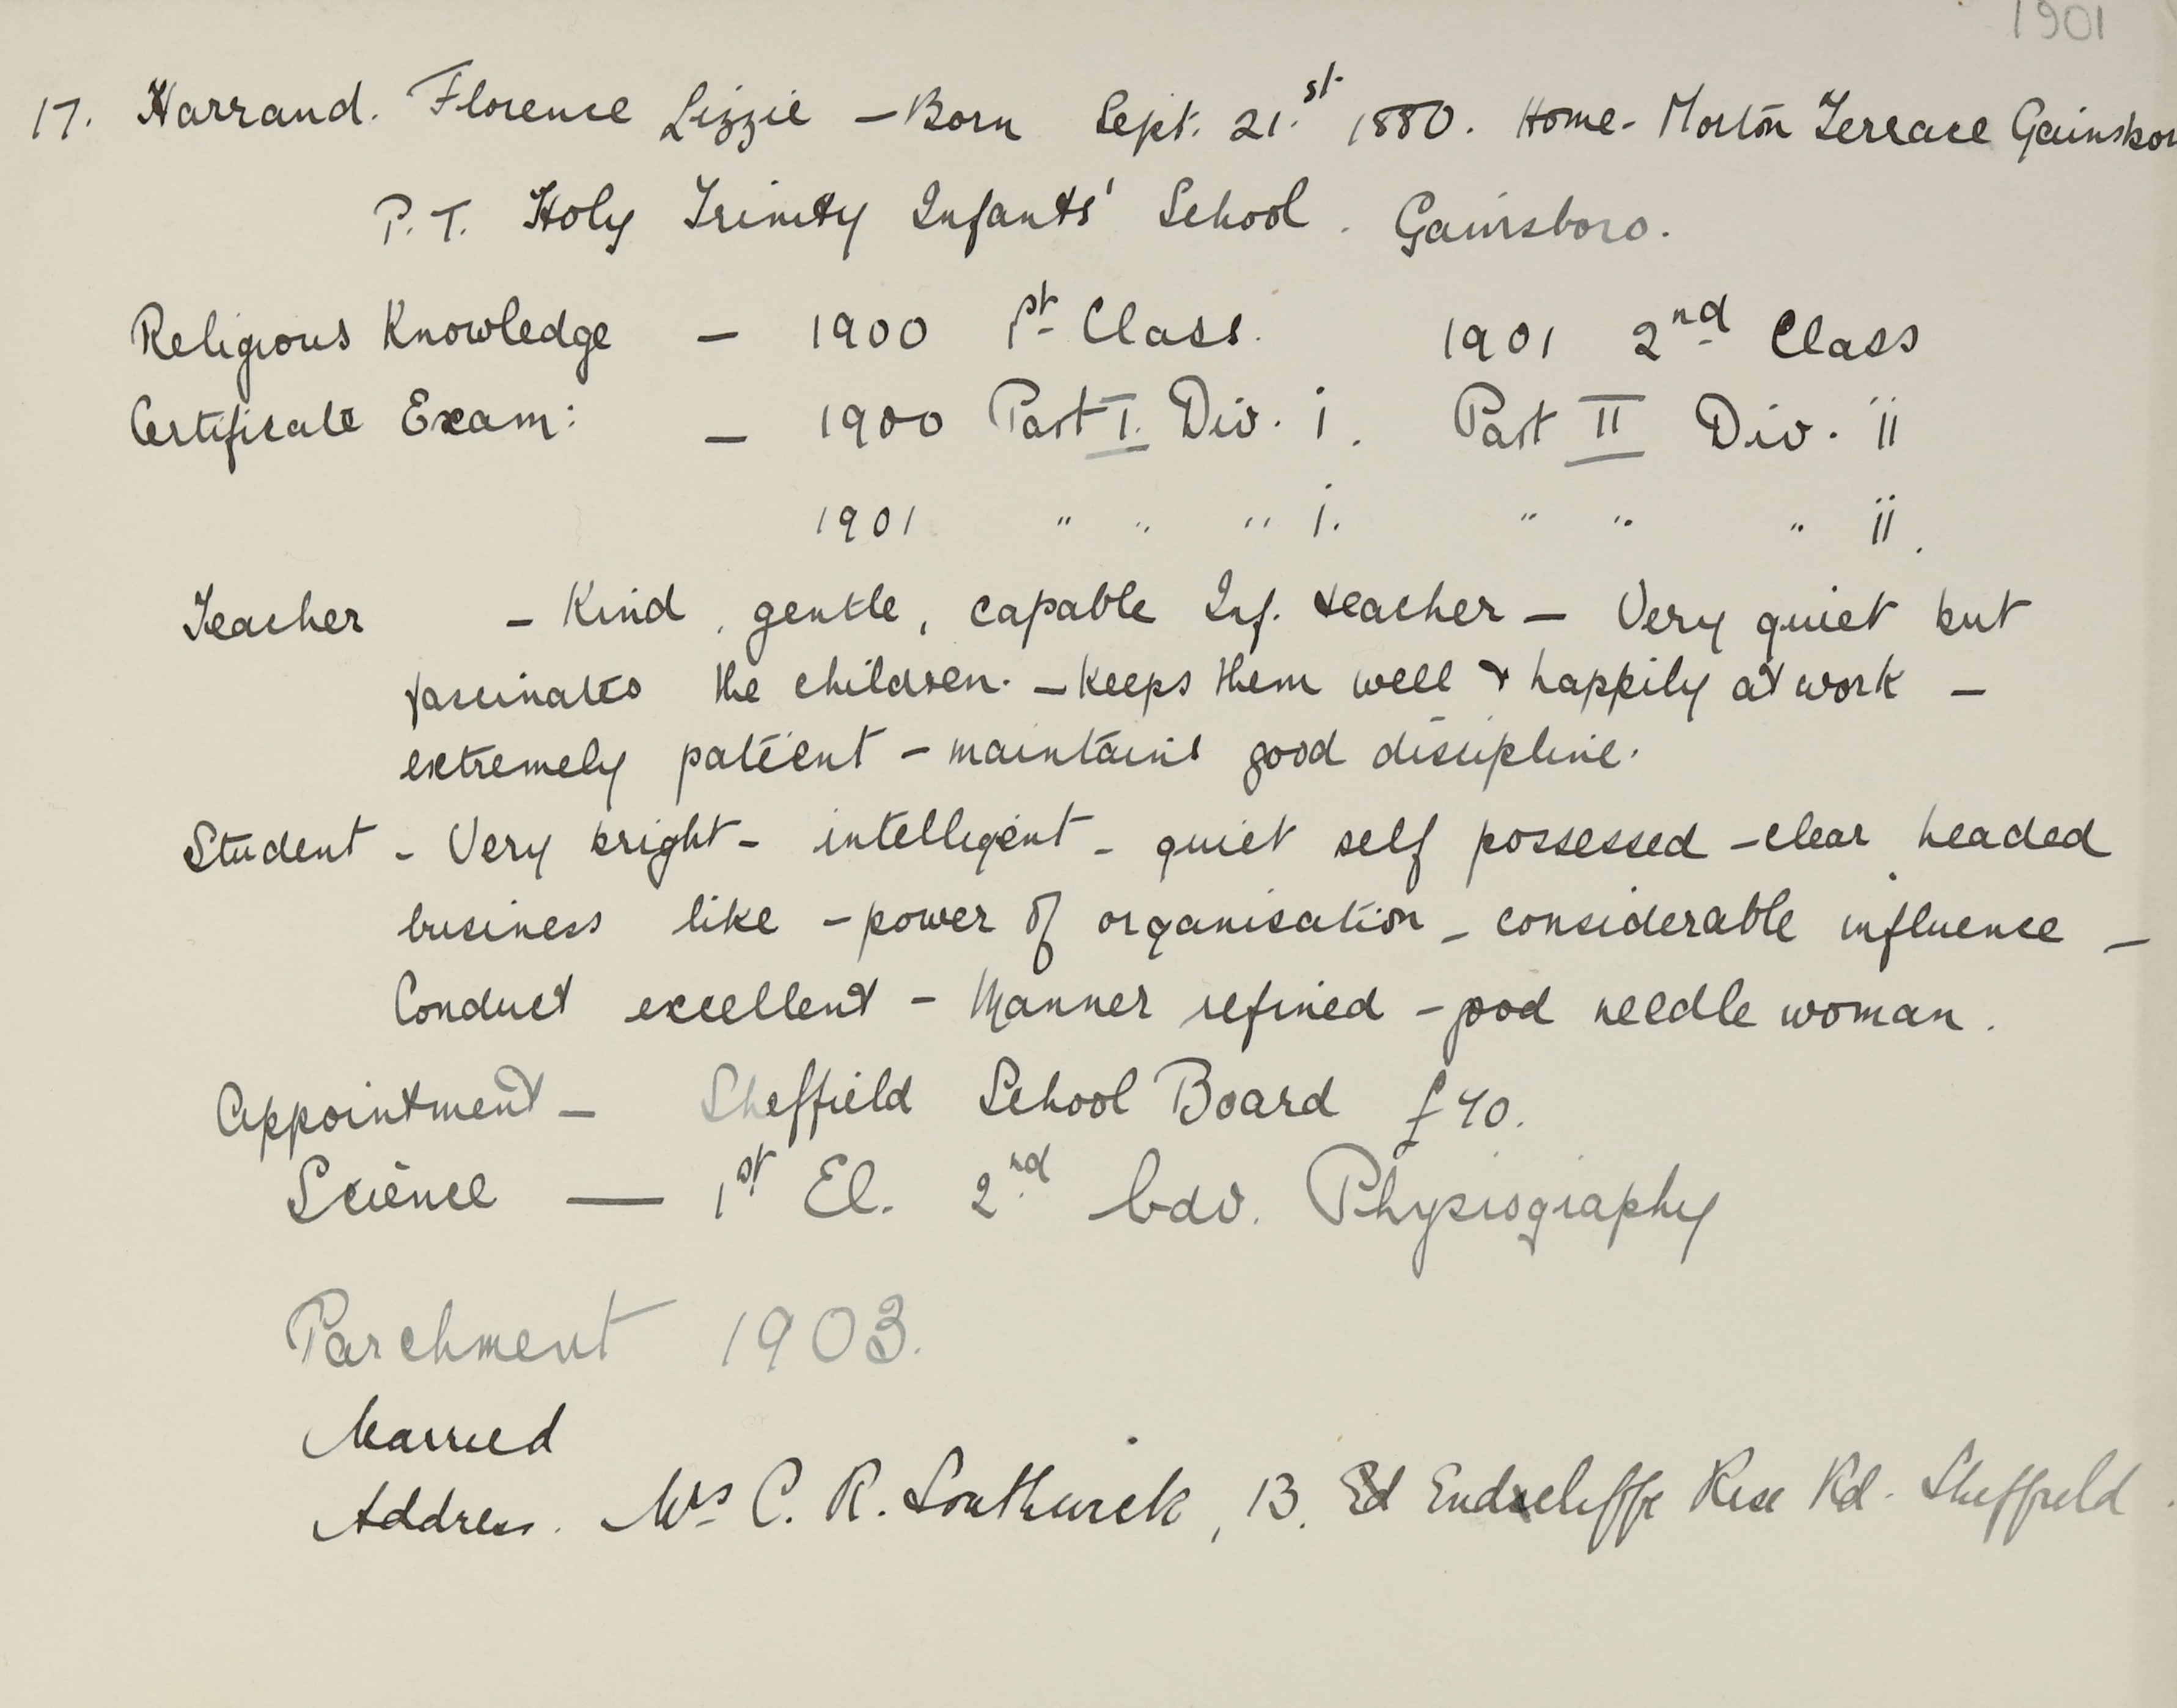 1901
17. Harrand. Florence Lizzie – Born Sept. 21.st 1880. Home - Morton Terrace Gainsbor
P.T. Holy Trinity Infants' School. Gainsboro.
Religious Knowledge – 1900 1st Class. 1901 2nd Class
Certificate Exam: – 1900 Part I. Div. i. Part II Div. ii
1901 " " " i. " " " ii.
Teacher – Kind, gentle, capable Inf. teacher – Very quiet but
fascinates the children. – Keeps them well & happily at work –
extremely patient – maintains good discipline.
Student – Very bright – intelligent – quiet self possessed – clear headed
business like – power of organisation – considerable influence –
Conduct excellent – Manner refined – good needle woman.
Appointment – Sheffield School Board £70.
Science — 1st El. 2nd Adv. Physiography
Parchment 1903.
Married
Address. Mrs C. R. Southwick, 13. Ed Endscliffe Rise Rd. Sheffield.